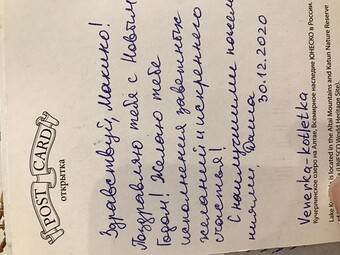 POST CARD
открытка
Здравствуй, Макико!
Поздравляю тебя с Новым
Годом! Желаю тебе
исполнения заветных
желаний и искреннего
счастья!
С наилучшими пожела
ниями Дана
30.12.2020
Venerka-kotletka
Кучерлинское озеро на Алтае, Всемирное наследие ЮНЕСКО в России.
Lake is located in the Altai Mountains and Katun Nature Reserve
(UNESCO World Heritage Site)